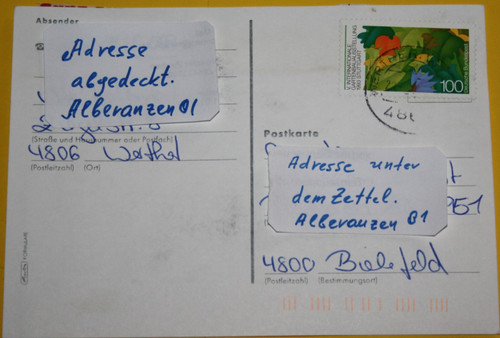 Absender
Adresse
abgedeckt.
Alberanzen 01
(Straße und Hausnummer oder Postfach)
4806 Werther
(Postleitzahl) (Ort)
V. INTERNATIONALE
GARTENBAUAUSSTELLUNG
1993 STUTTGART
100
480
Postkarte
Adresse unter
dem Zettel.
Alberanzen 01
951
4800 Bielefeld
(Postleitzahl) (Bestimmungsort)